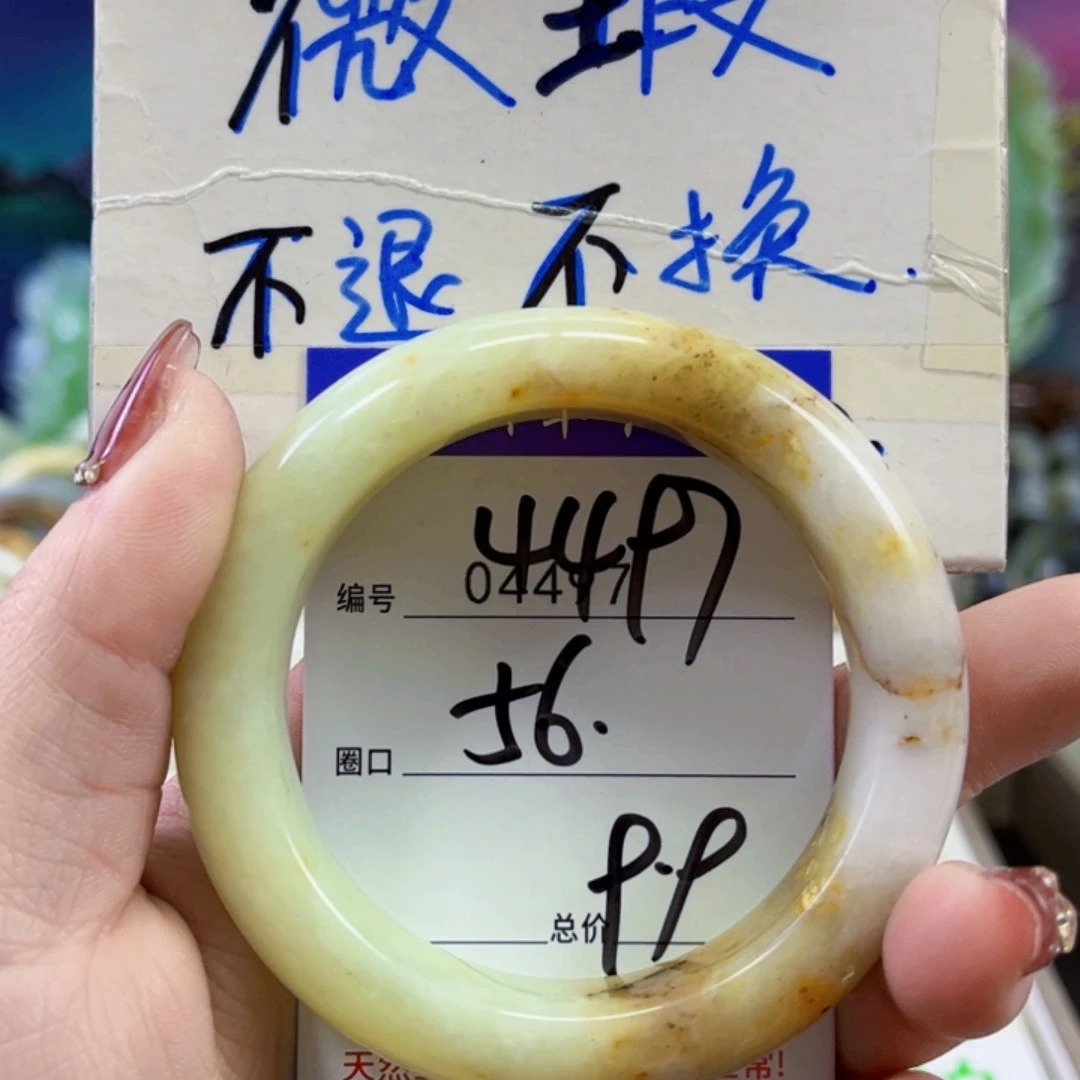 微瑕
不退不换.
4497
编号 04497
圈口 56.
总价 9.9
天然
常!